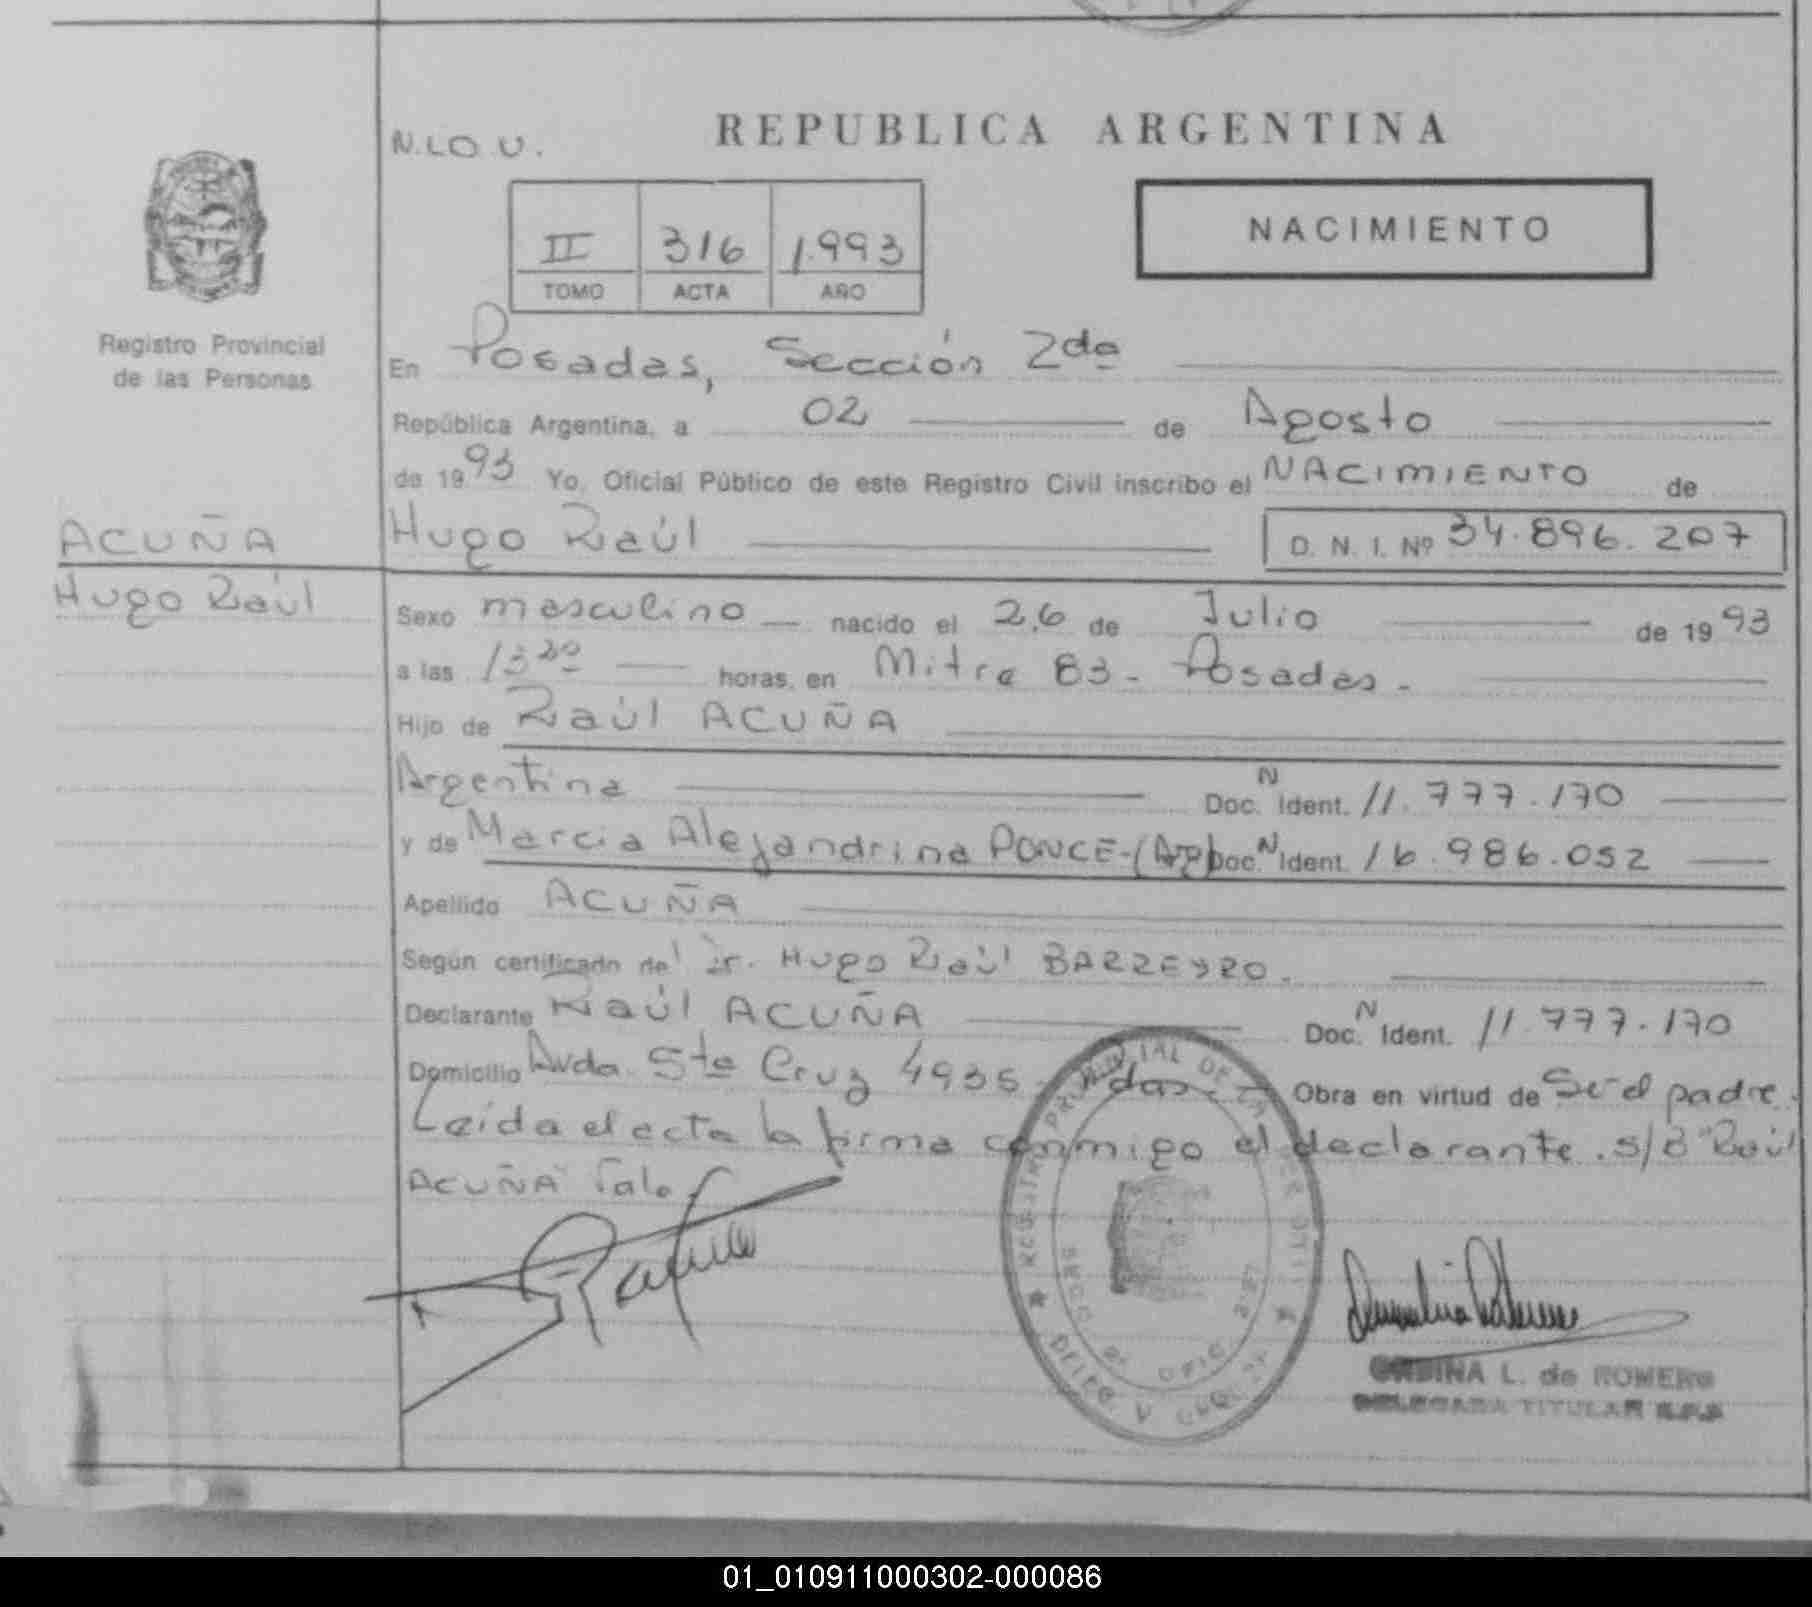 REPUBLICA ARGENTINA
N.LO.U.
NACIMIENTO
II 316 1.993
TOMO ACTA AÑO
Registro Provincial
de las Personas
En Posadas, Sección 2da
República Argentina, a 02 de Agosto
de 1993 Yo, Oficial Público de este Registro Civil inscribo el NACIMIENTO de
ACUÑA
Hugo Raúl
Hugo Raúl D. N. I. Nº 34.896.207
Sexo masculino nacido el 26 de Julio de 1993
a las horas, en Mitre 83 - Posadas.-
Hijo de Raúl ACUÑA
Argentina Doc. N Ident. 11.777.170
y de Marcia Alejandrina PONCE-(Arg) Doc. N Ident. 16.986.052
Apellido ACUÑA
Según certificado del Dr. Hugo Raúl BARREYRO.
Declarante Raúl ACUÑA Doc. N Ident. 11.777.170
Domicilio Avda. Sta Cruz 4935 Obra en virtud de Ser el padre.
Leída el acta la firma conmigo el declarante. S/B "Raúl
ACUÑA" Vale.
L. de ROMERO
DELEGADA TITULAR R.P.P.
01_010911000302-000086